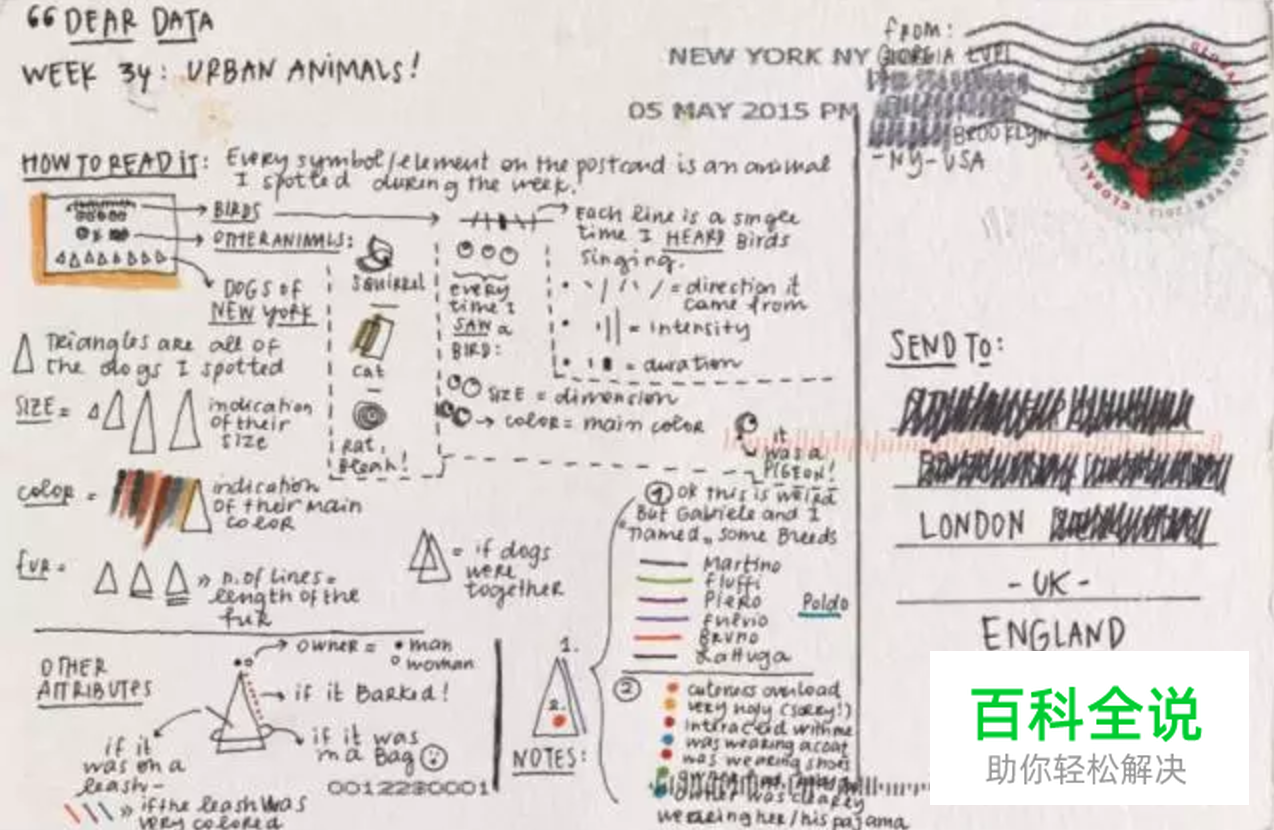 “ DEAR DATA
WEEK 34: URBAN ANIMALS!
HOW TO READ IT: EVERY symbol/element on the postcard is an animal
I spotted during the week.
BIRDS
OTHER ANIMALS:
DOGS OF
NEW YORK
squirrel
cat
Rat,
Bleah!
EACH line is a single
time I HEARD Birds
singing.
= direction it
came from
= intensity
= duration
every
time I
SAW a
BIRD:
SIZE = dimension
color = main color
it
was a
PIGEON!
TRIANGLES ARE all of
the dogs I spotted
SIZE =
indication
of their
size
color =
indication
of their main
color
fur =
» n. of lines =
length of the
fur
= if dogs
were
together
OTHER
ATTRIBUTES
owner = • man
° woman
if it Barked!
if it was
in a Bag
if it
was on a
leash-
» if the leash was
very colored
1.
2.
NOTES:
1 OK this is weird
But Gabriele and I
"named" some Breeds
Martino
Fluffi
Piero
Fulvio
Bruno
Lattuga
Poldo
2
cuteness overload
very ugly (sorry!)
interacted with me
was wearing a coat
was wearing shoes
owner was clearly
wearing her/his pajama
0012230001
NEW YORK NY
05 MAY 2015 PM
FROM:
GIORGIA LUPI
BROOKLYN
-NY-USA
GLOBAL
FOREVER
SEND TO:
LONDON
- UK -
ENGLAND
百科全说
助你轻松解决